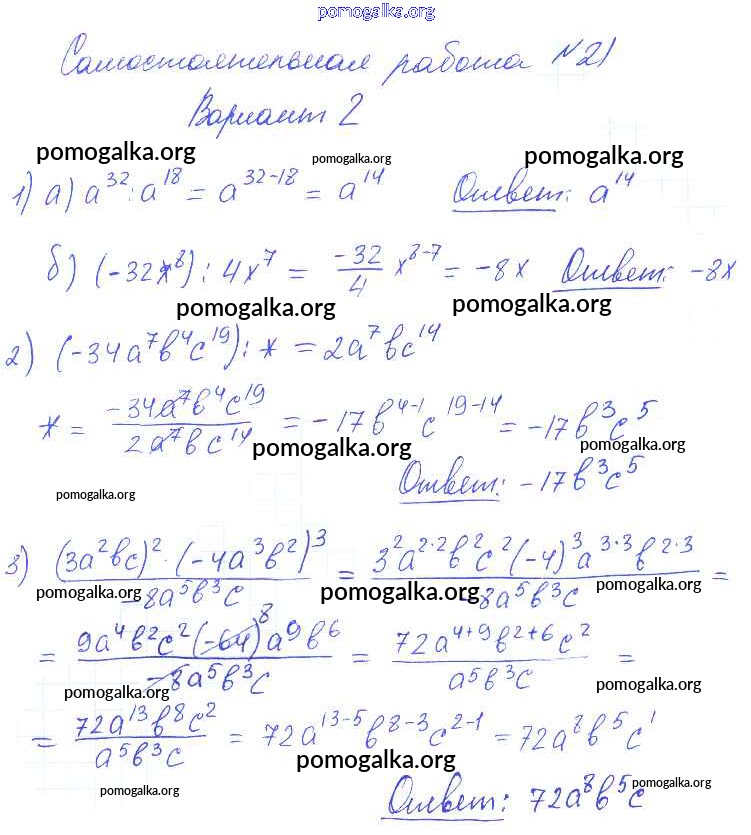 pomogalka.org
Самостоятельная работа №21
Вариант 2
pomogalka.org pomogalka.org pomogalka.org
1) а) a^32 : a^18 = a^(32-18) = a^14 Ответ: a^14
б) (-32x^8) : 4x^7 = -32/4 x^(8-7) = -8x Ответ: -8x
pomogalka.org pomogalka.org
2) (-34a^7b^4c^19) : * = 2a^7bc^14
* = -34a^7b^4c^19 / 2a^7bc^14 = -17b^(4-1)c^(19-14) = -17b^3c^5
pomogalka.org pomogalka.org
Ответ: -17b^3c^5
pomogalka.org
3) (3a^2bc)^2 · (-4a^3b^2)^3 / -8a^5b^3c = 3^2a^(2·2)b^2c^2(-4)^3a^(3·3)b^(2·3) / -8a^5b^3c =
pomogalka.org pomogalka.org pomogalka.org
= 9a^4b^2c^2(-64)^8a^9b^6 / -8a^5b^3c = 72a^(4+9)b^(2+6)c^2 / a^5b^3c =
pomogalka.org pomogalka.org
= 72a^13b^8c^2 / a^5b^3c = 72a^(13-5)b^(8-3)c^(2-1) = 72a^8b^5c^1
pomogalka.org
pomogalka.org pomogalka.org
Ответ: 72a^8b^5c